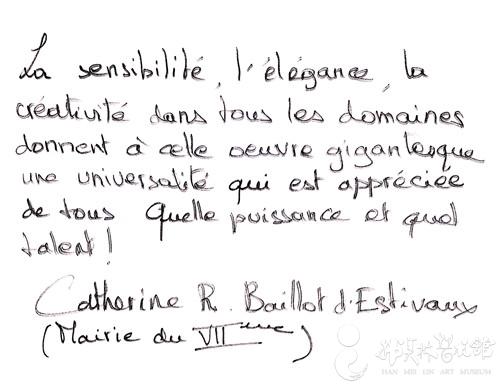 La sensibilité, l'élégance, la
créativité dans tous les domaines
donnent à celle oeuvre gigantesque
une universalité qui est appréciée
de tous Quelle puissance et quel
talent !
Catherine R. Baillot d'Estivaux
(Mairie du VIIème)
韩美林艺术馆
HAN MEI LIN ART MUSEUM